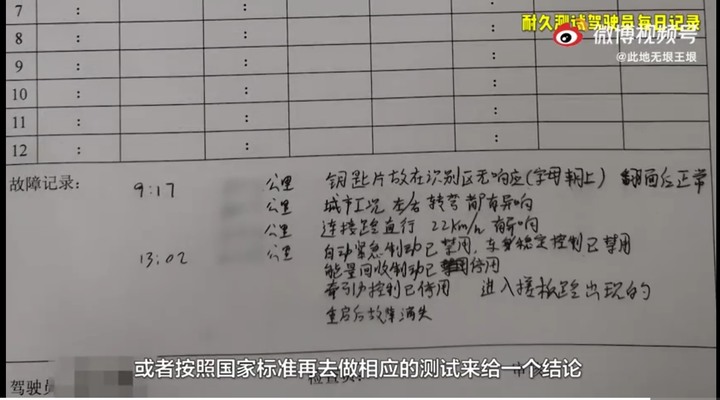 耐久测试驾驶员每日记录
微博视频号
@此地无垠王垠
7 : : : :
8 : : : :
9 : : : :
10 : : : :
11 : : : :
12 : : : :
故障记录:
9:17 公里 钥匙片放在识别区无响应(字母朝上) 翻面后正常
公里 城市工况 左右转弯都有异响
公里 连接路直行 22km/h 有异响
13:02 公里 自动紧急制动已禁用,车身稳定控制已禁用
能量回收制动已停用
牵引力控制已停用 进入搓板路出现的
重启后故障消失
或者按照国家标准再去做相应的测试来给一个结论
驾驶员